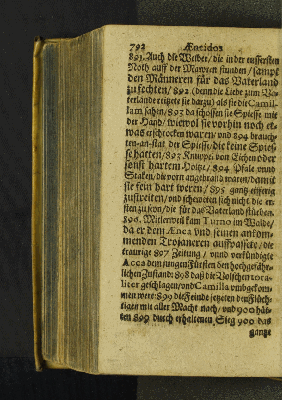 792 Æneidos
891. Auch die Weiber/ die in der eussersten
Noth auff der Mauren stunden/ sampt
den Männeren für das Vaterland
zu fechten/ 892 (denn die Liebe zum Va-
terlande reitzete sie darzu) als sie die Camil-
lam sahen/ 893 da schossen sie Spiesse mit
der Hand/ wiewol sie vorhin noch et-
was erschrocken waren/ und 894 brauch-
ten an-stat der Spiesse/ die keine Spies-
schafften/ 893 Knüppel von Eichen oder
sonst hartem Holtze/ 894 Pfäle vnnd
Staken/ die vorn angebrand waren/ damit
sie fein hart weren/ 895 gantz eifferig
zustreiten/ und scheweten sich nicht die er-
sten zu seyn/ die für das Vaterland stürben.
896. Mitlerweil kam Turno im Walde/
da er dem Ænea vnd seinen ankom-
menden Trojaneren auffpassete/ die
traurige 897 Zeitung/ vnnd verkündigte
Acca dem jungen Fürsten den hochgefähr-
lichen Zustand: 898 daß die Volschen tota-
liter geschlagen/ und Camilla umbgekom-
men were: 899 die Feinde jetzeten den Flüch-
tigen mit aller Macht nach/ und 900 hät-
ten 899 durch erhaltenen Sieg 900 das
gantze